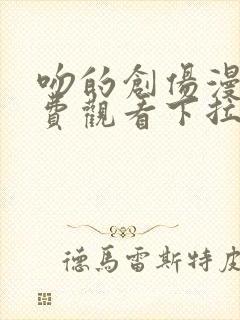 吻的創傷漫
費觀看下拉
德馬雷斯特皮